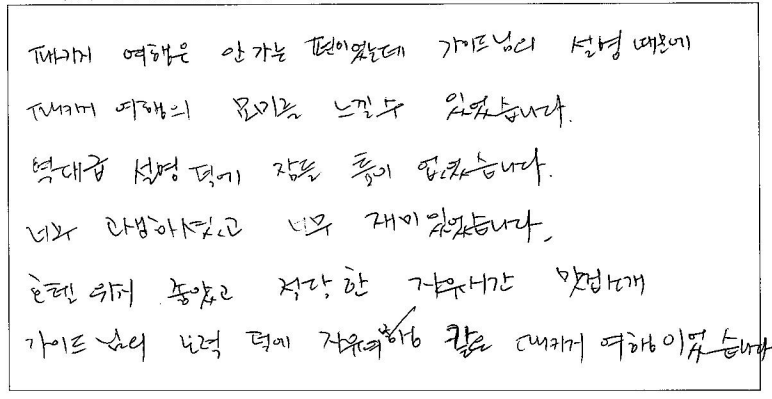 패키지 여행은 안 가는 편이었는데 가이드님의 설명 때문에
패키지 여행의 묘미를 느낄 수 있었습니다.
역대급 설명 덕에 잠들 틈이 없었습니다.
너무 고생하셨고 너무 재미있었습니다.
호텔 위치 좋았고 적당한 자유시간 맛집소개
가이드님의 노력 덕에 자유여행 같은 패키지 여행이었습니다